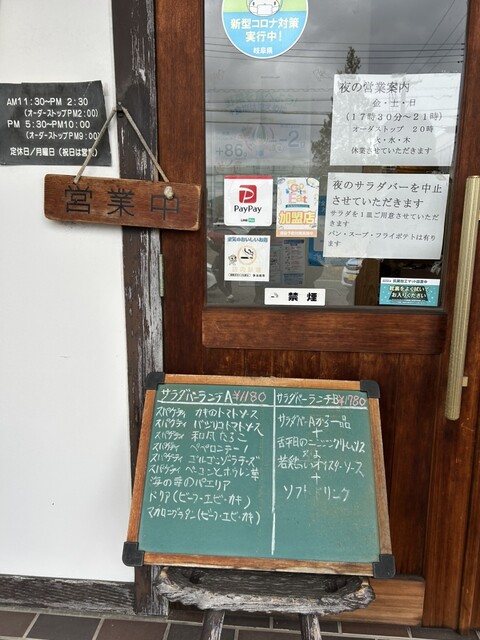 新型コロナ対策
実行中!
岐阜県
AM11:30~PM 2:30
(オーダーストップPM2:00)
PM 5:30~PM10:00
(オーダーストップPM9:00)
定休日/月曜日(祝日は営業)
営業中
夜の営業案内
金・土・日
(17時30分~21時)
オーダストップ 20時
火・水・木
休業させていただきます
夜のサラダバーを中止
させていただきます
サラダを1皿ご用意させていただき
ます
パン・スープ・フライポテトは有り
ます
PayPay
Go To Eat
加盟店
禁煙
靴裏をよく拭いて
お入りください
サラダバーランチA ¥1180
スパゲティ カキのトマトソース
スパゲティ
スパゲティ 和風たらこ
スパゲティ ペペロンチーノ
スパゲティ ゴルゴンゾーラチーズ
スパゲティ ベーコンとホウレン草
海の幸のパエリア
ドリア(ビーフ・エビ・カキ)
マカロニグラタン(ビーフ・エビ・カキ)
サラダバーランチB ¥1780
サラダバーAから一品
+
又は
若鶏 オイスターソース
+
ソフトドリンク